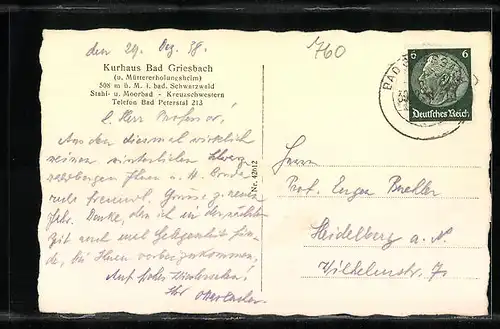 den 29. Dez. 38.
760
Kurhaus Bad Griesbach
(u. Müttererholungsheim)
508 m ü. M. i. bad. Schwarzwald
Stahl- u. Moorbad - Kreuzschwestern
Telefon Bad Peterstal 213
L. Herr Professor!
Aus den diesmal wirklich
winterlichen
Ihnen u. H.
freundl. Grüsse z. neuen
Jahr. Denke, dass ich in der nächsten
Zeit auch mal Gelegenheit fin-
de, bei Ihnen vorbeizukommen.
Auf frohes Wiedersehen!
Ihr
Nr. 42612
BAD
6
6
Deutsches Reich
Herrn
Prof. Eugen
Heidelberg a. N.
Wilhelmstr.